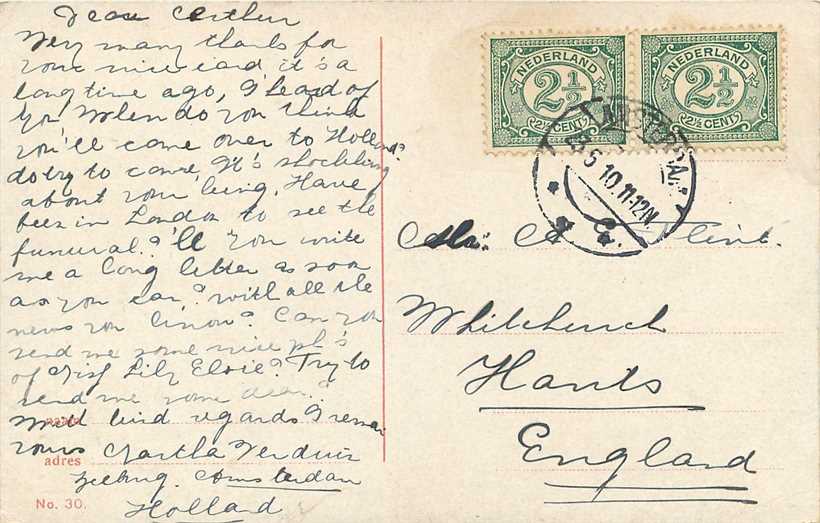 Dear Arthur
Very many thanks for
your nice card it's a
long time ago, I heard of
you When do you think
you'll come over to Holland?
do try to come, It's shocking
about your king, Have
been in London to see the
funeral? 'll you write
me a long letter as soon
as you can? with all the
news you know? Can you
send me some nice ph's
of Miss Lily Elsie? Try to
send me some dear?
With kind regards I remain
naam
yours Martha Verduin
adres
Amsterdam
Holland
No. 30.
NEDERLAND
2½
2½ CENT
NEDERLAND
2½
2½ CENT
AMSTERDAM
5 10 11-12N
Mr. A Flint.
Whitchurch
Hants
England